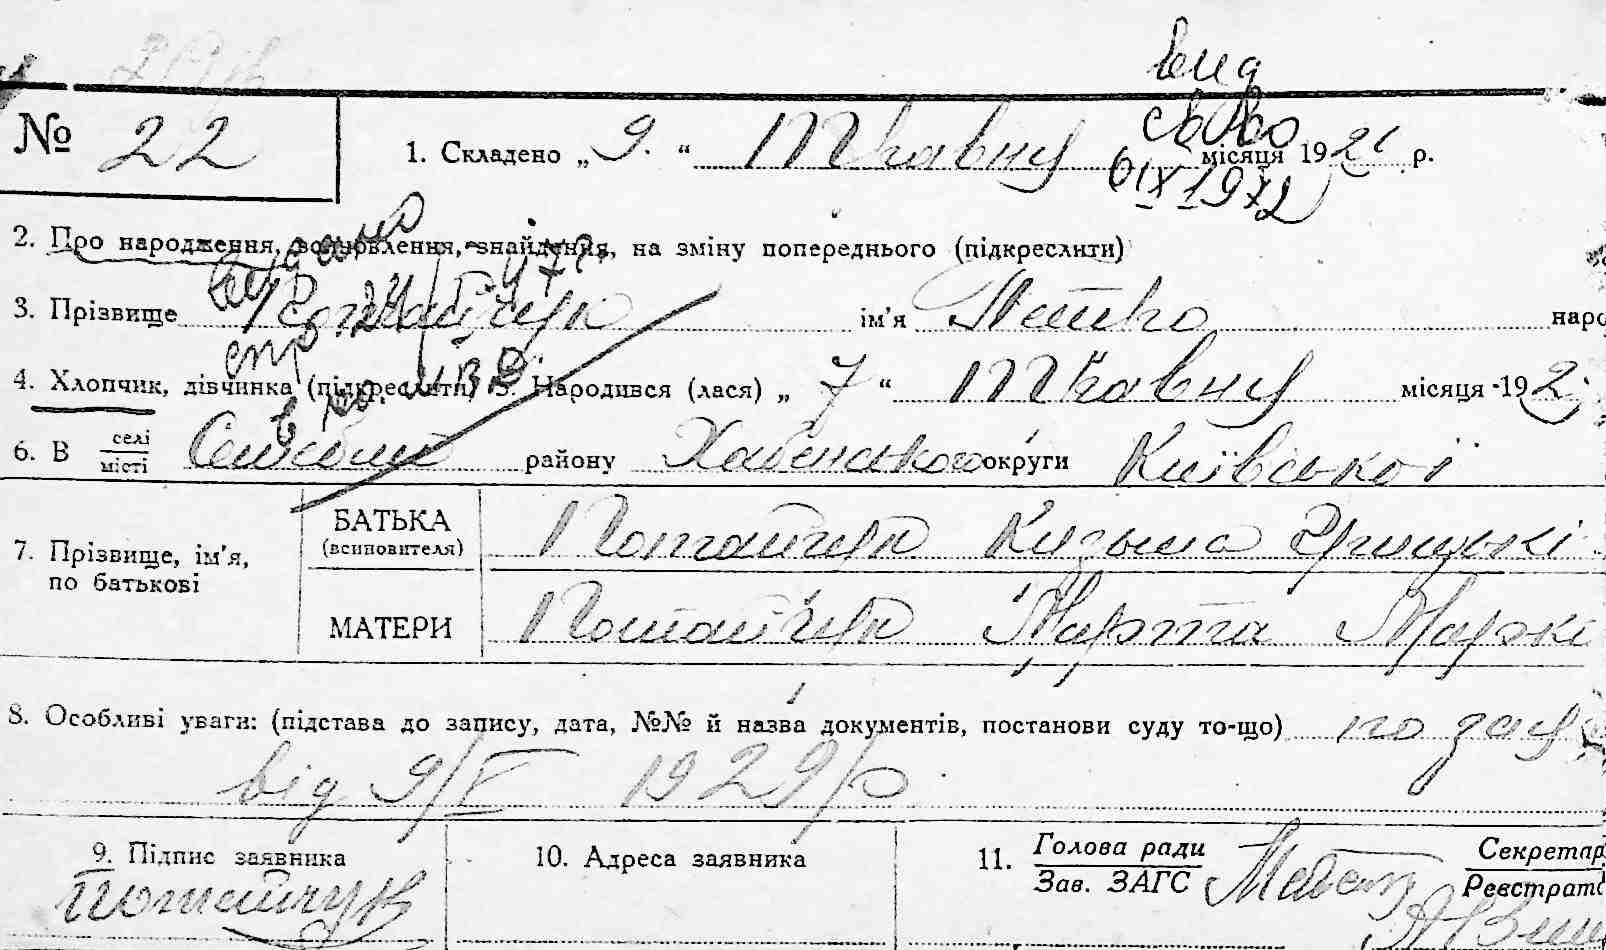 № 22
1. Складено „ 9. “ Травня місяця 192 р.
вид
IX 1972
2. Про народження, встановлення, знайдення, на зміну попереднього (підкреслити)
3. Прізвище Потапчук ім'я Петро наро
4. Хлопчик, дівчинка (підкреслити) 5. Народився (лася) „ 7 “ Травня місяця 192
6. В селі
місті
району Хабенського округи Київської
7. Прізвище, ім'я,
по батькові
БАТЬКА
(всиновителя)
Потапчук Кузьма Грицькі
МАТЕРИ
Потапчук Марта Маркі
8. Особливі уваги: (підстава до запису, дата, №№ й назва документів, постанови суду то-що) по заяв
від 9/V 1929 р
9. Підпис заявника
Потапчук
10. Адреса заявника
11. Голова ради
Зав. ЗАГС
Секретар
Реєстрато